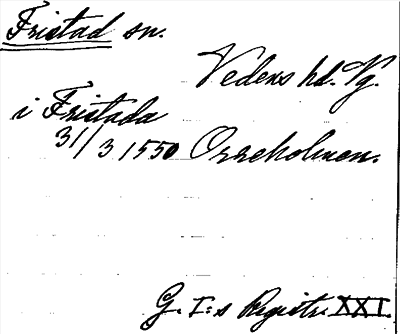 Fristad sn.
Vedens hd. Vg.
i Fristada
31/3 1550 Orreholmen.
G. I:s Registr. XXI.